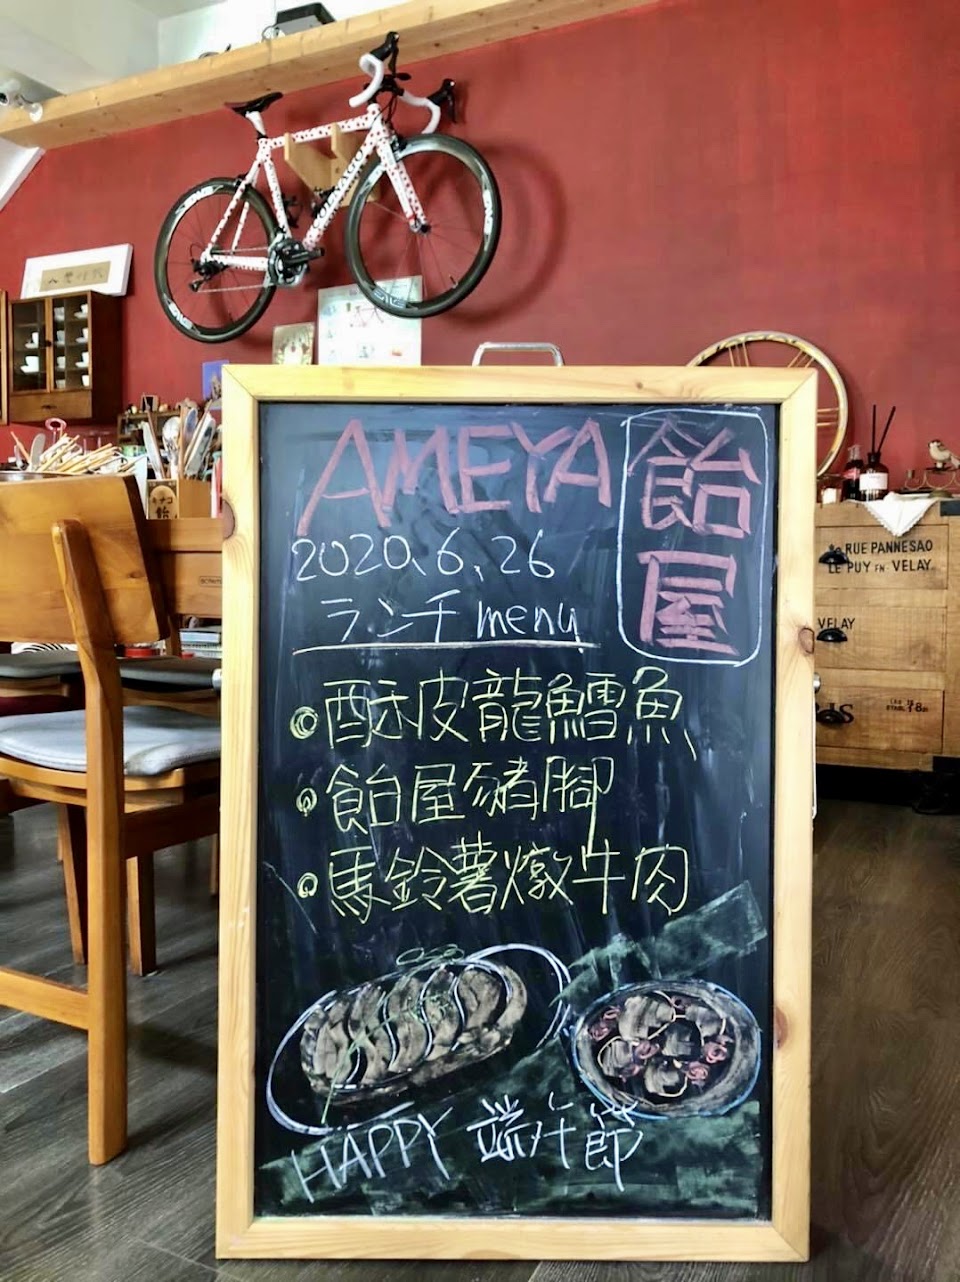 AMEYA
飴屋
2020.6.26
ランチmenu
酥皮龍鱈魚
飴屋豬腳
馬鈴薯燉牛肉
HAPPY 端午節
RUE PANNESAO
LE PUY EN-VELAY
VELAY